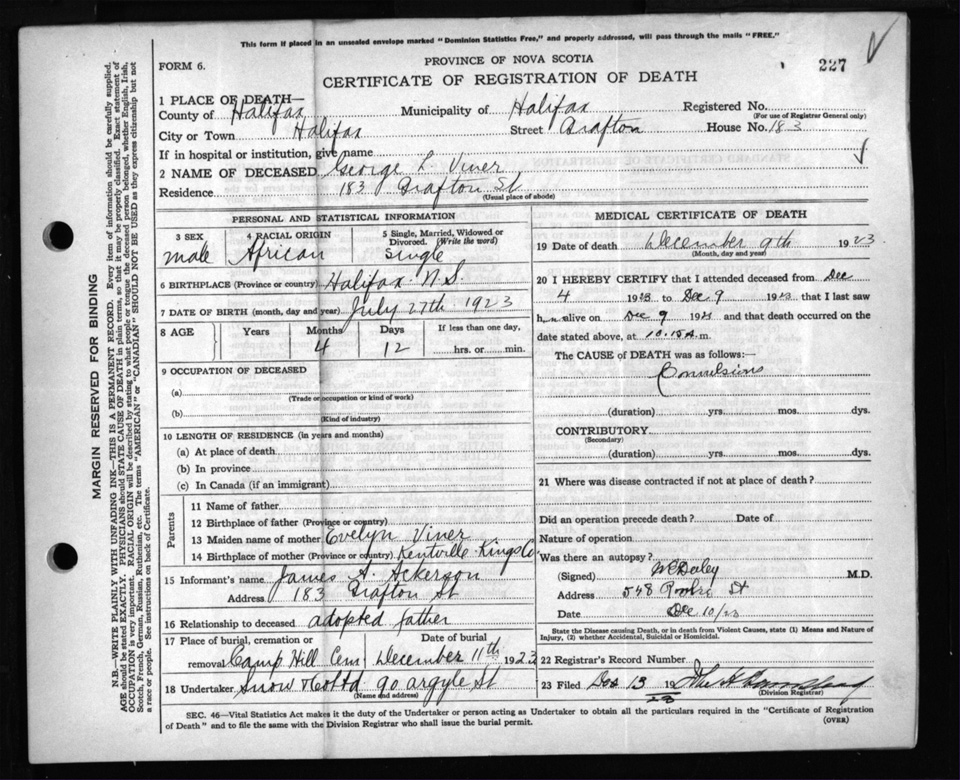 This form if placed in an unsealed envelope marked "Dominion Statistics Free," and properly addressed, will pass through the mails "FREE."
FORM 6.
PROVINCE OF NOVA SCOTIA
227
CERTIFICATE OF REGISTRATION OF DEATH
1 PLACE OF DEATH—
County of Halifax Municipality of Halifax Registered No.
(For use of Registrar General only)
City or Town Halifax Street Grafton House No. 183
If in hospital or institution, give name
2 NAME OF DECEASED George L. Viner
Residence 183 Grafton St
(Usual place of abode)
PERSONAL AND STATISTICAL INFORMATION
3 SEX 4 RACIAL ORIGIN 5 Single, Married, Widowed or Divorced. (Write the word)
male African Single
6 BIRTHPLACE (Province or country) Halifax N.S.
7 DATE OF BIRTH (month, day and year) July 27th 1923
8 AGE Years Months Days If less than one day,
4 12 hrs. or min.
9 OCCUPATION OF DECEASED
(a)
(Trade or occupation or kind of work)
(b)
(Kind of industry)
10 LENGTH OF RESIDENCE (in years and months)
(a) At place of death
(b) In province
(c) In Canada (if an immigrant)
Parents
11 Name of father
12 Birthplace of father (Province or country)
13 Maiden name of mother Evelyn Viner
14 Birthplace of mother (Province or country) Kentville Kings Co
15 Informant's name James A. Ackerson
Address 183 Grafton St
16 Relationship to deceased adopted father
17 Place of burial, cremation or Date of burial
removal Camp Hill Cem December 11th 1923
18 Undertaker Snow & Co Ltd 90 argyle St
(Name and address)
MEDICAL CERTIFICATE OF DEATH
19 Date of death December 9th 1923
(Month, day and year)
20 I HEREBY CERTIFY that I attended deceased from Dec
4 1923 to Dec 9 1923 that I last saw
him alive on Dec 9 1923 and that death occurred on
date stated above, at 10.15 A.m.
The CAUSE OF DEATH was as follows:—
Convulsions
(duration) yrs. mos. dys.
CONTRIBUTORY
(Secondary)
(duration) yrs. mos. dys.
21 Where was disease contracted if not at place of death?
Did an operation precede death? Date of
Nature of operation
Was there an autopsy?
(Signed) M.D.
Address St
Date Dec 10/23
State the Disease causing Death, or in death from Violent Causes, state (1) Means and Nature of
Injury, (2) whether Accidental, Suicidal or Homicidal.
22 Registrar's Record Number
23 Filed Dec 13 19 23
(Division Registrar)
SEC. 46—Vital Statistics Act makes it the duty of the Undertaker or person acting as Undertaker to obtain all the particulars required in the "Certificate of Registration
of Death" and to file the same with the Division Registrar who shall issue the burial permit. (OVER)
MARGIN RESERVED FOR BINDING
N.B.—WRITE PLAINLY WITH UNFADING INK—THIS IS A PERMANENT RECORD. Every item of information should be carefully supplied.
AGE should be stated EXACTLY. PHYSICIANS should STATE CAUSE OF DEATH in plain terms, so that it may be properly classified. Exact statement of
OCCUPATION is very important. RACIAL ORIGIN will be described by stating to what people or tongue the deceased person belonged, whether English, Irish,
Scotch, French, German, Russian, Ruthenian, etc. The terms "AMERICAN" or "CANADIAN" SHOULD NOT BE USED as they express citizenship but not
a race or people. See instructions on back of Certificate.